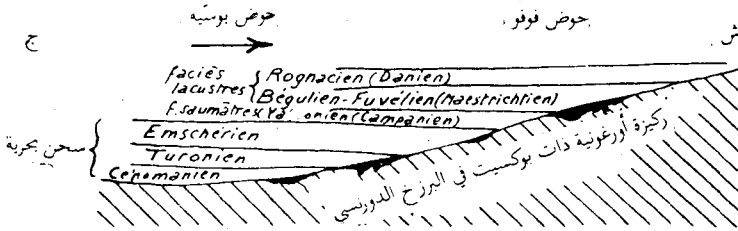 حوض بوسّيه
حوض فوفو
ج
ش
faciès lacustres
Rognacien (Danien)
Bégulien-Fuvélien (Maestrichtien)
F. saumâtres
onien (Campanien)
Emschérien
Turonien
Cénomanien
سحن بحرية
ركيزة أورغونية ذات بوكسيت في البرزخ الدورنسي